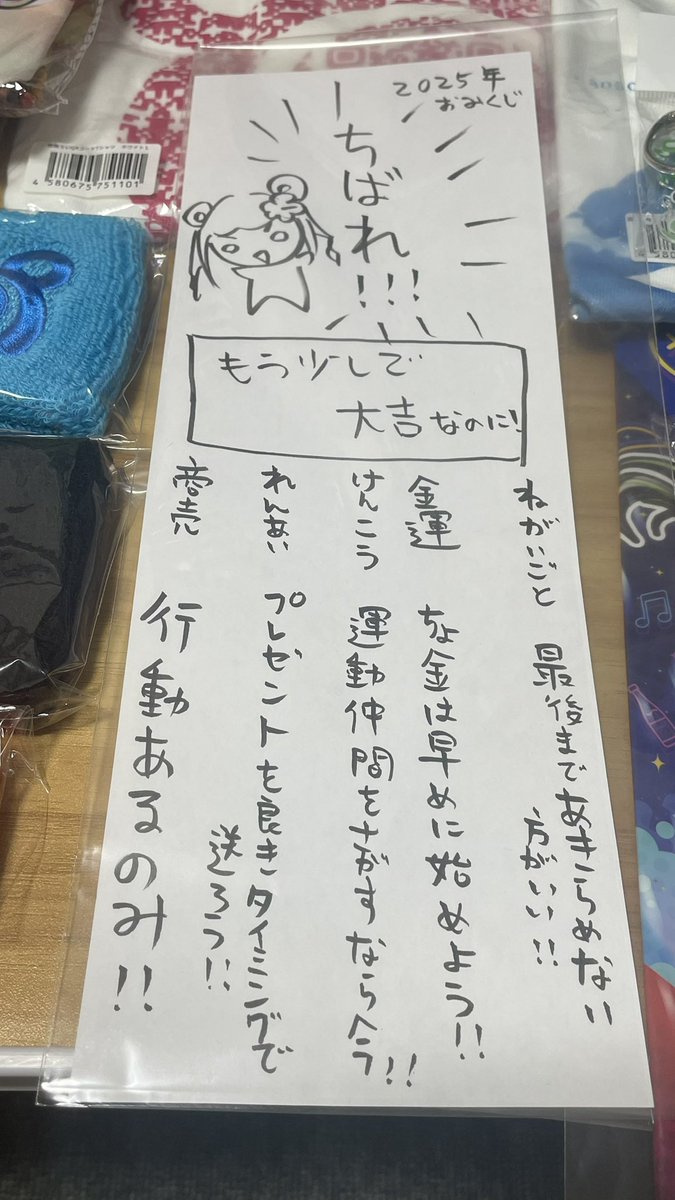 2025年
おみくじ
ちばれ!!!
もう少しで
大吉なのに!
ねがいごと 最後まであきらめない
方がいい!!
金運 ちょ金は早めに始めよう!!
けんこう 運動仲間をさがすなら今!!
れんあい プレゼントを良きタイミングで
送ろう!!
商売 行動あるのみ!!
4 580675 751101